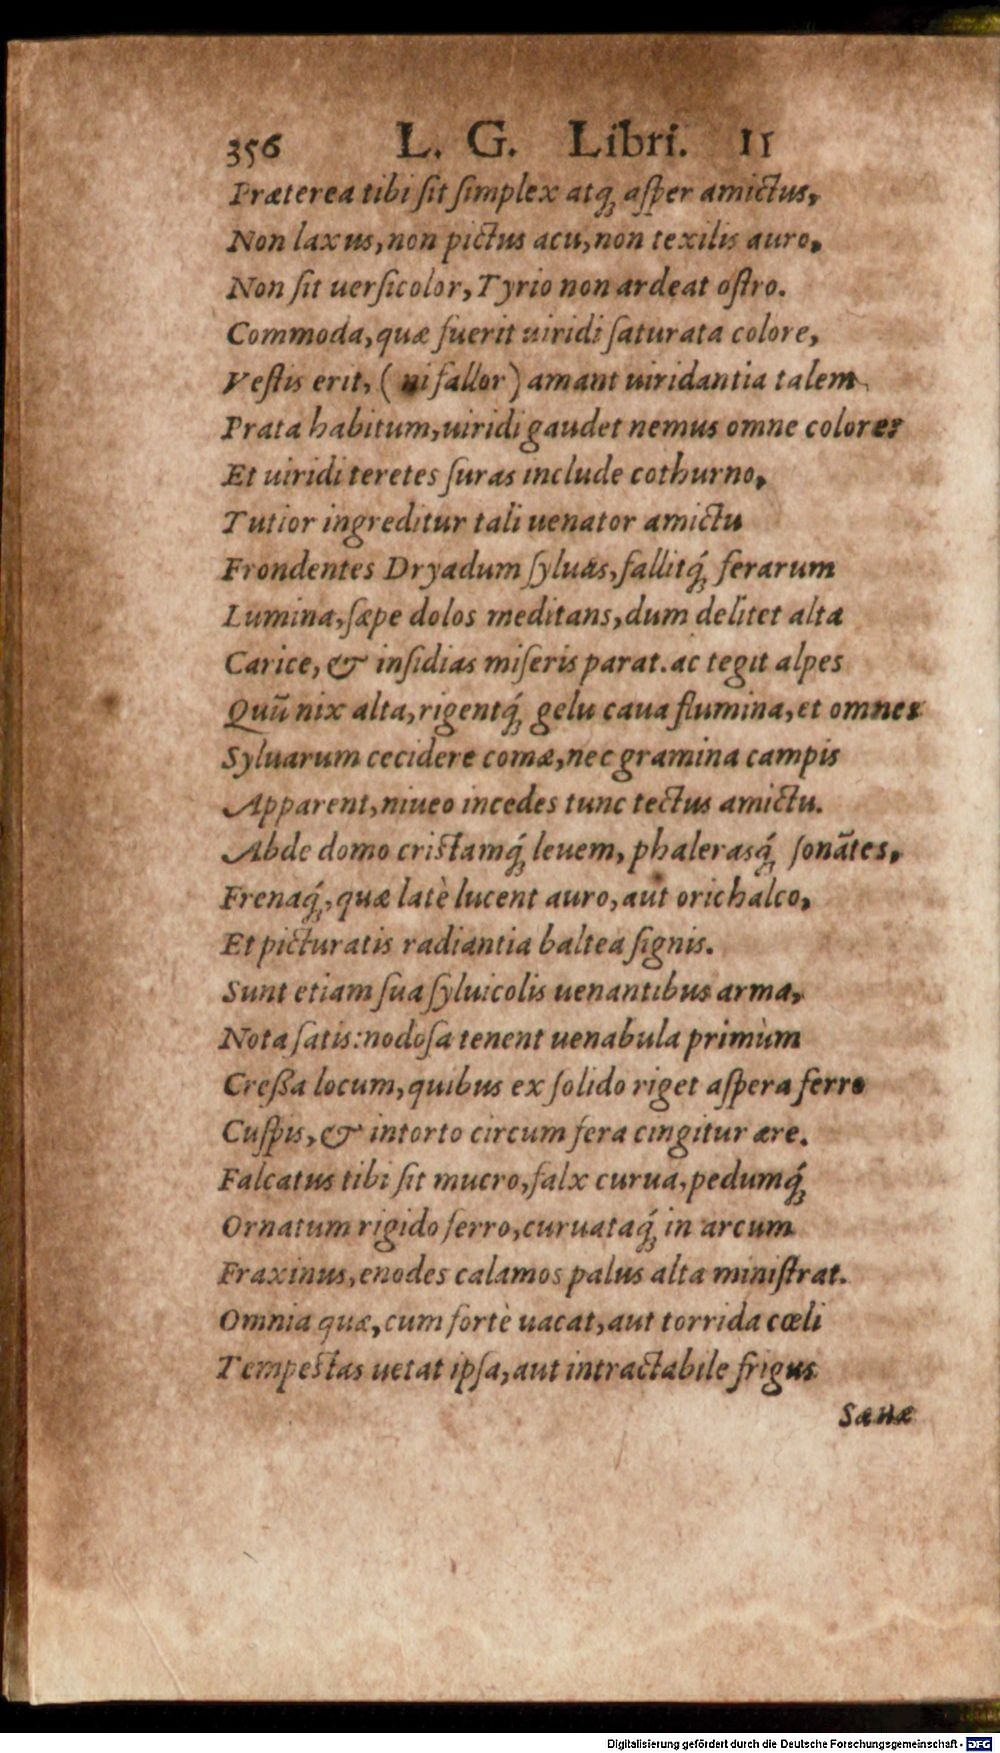 356 L. G. Libri. II
Præterea tibi ſit ſimplex atq; aſper amictus,
Non laxus, non pictus acu, non texilis auro,
Non ſit uerſicolor, Tyrio non ardeat oſtro.
Commoda, quæ fuerit uiridi ſaturata colore,
Veſtis erit, (ni fallor) amant uiridantia talem
Prata habitum, uiridi gaudet nemus omne colore:
Et uiridi teretes ſuras include cothurno,
Tutior ingreditur tali uenator amictu
Frondentes Dryadum ſyluas, fallitq́; ferarum
Lumina, ſæpe dolos meditans, dum delitet alta
Carice, & inſidias miſeris parat. ac tegit alpes
Quū nix alta, rigentq́; gelu caua flumina, et omnes
Syluarum cecidere comæ, nec gramina campis
Apparent, niueo incedes tunc tectus amictu.
Abde domo criſtamq́; leuem, phalerasq́; ſonātes,
Frenaq́;, quæ latè lucent auro, aut orichalco,
Et picturatis radiantia baltea ſignis.
Sunt etiam ſua ſyluicolis uenantibus arma,
Nota ſatis: nodoſa tenent uenabula primùm
Creßa locum, quibus ex ſolido riget aſpera ferro
Cuſpis, & intorto circum fera cingitur ære.
Falcatus tibi ſit mucro, falx curua, pedumq́;
Ornatum rigido ferro, curuataq́; in arcum
Fraxinus, enodes calamos palus alta miniſtrat.
Omnia quæ, cum fortè uacat, aut torrida cœli
Tempeſtas uetat ipſa, aut intractabile frigus
Sæuæ
Digitalisierung gefördert durch die Deutsche Forschungsgemeinschaft - DFG